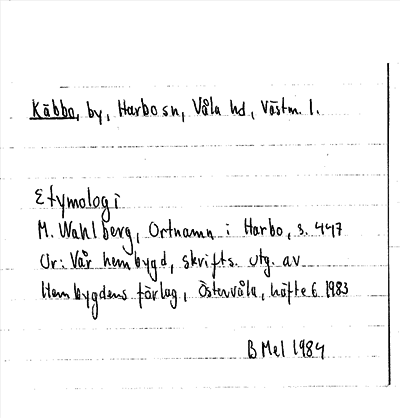 Käbbo, by, Harbo sn, Våla hd, Västm. l.
Etymologi
M. Wahlberg, Ortnamn i Harbo, s. 447
Ur: Vår hembygd, skrifts. utg. av
Hembygdens förlag, Östervåla, häfte 6 1983
B Mel 1984